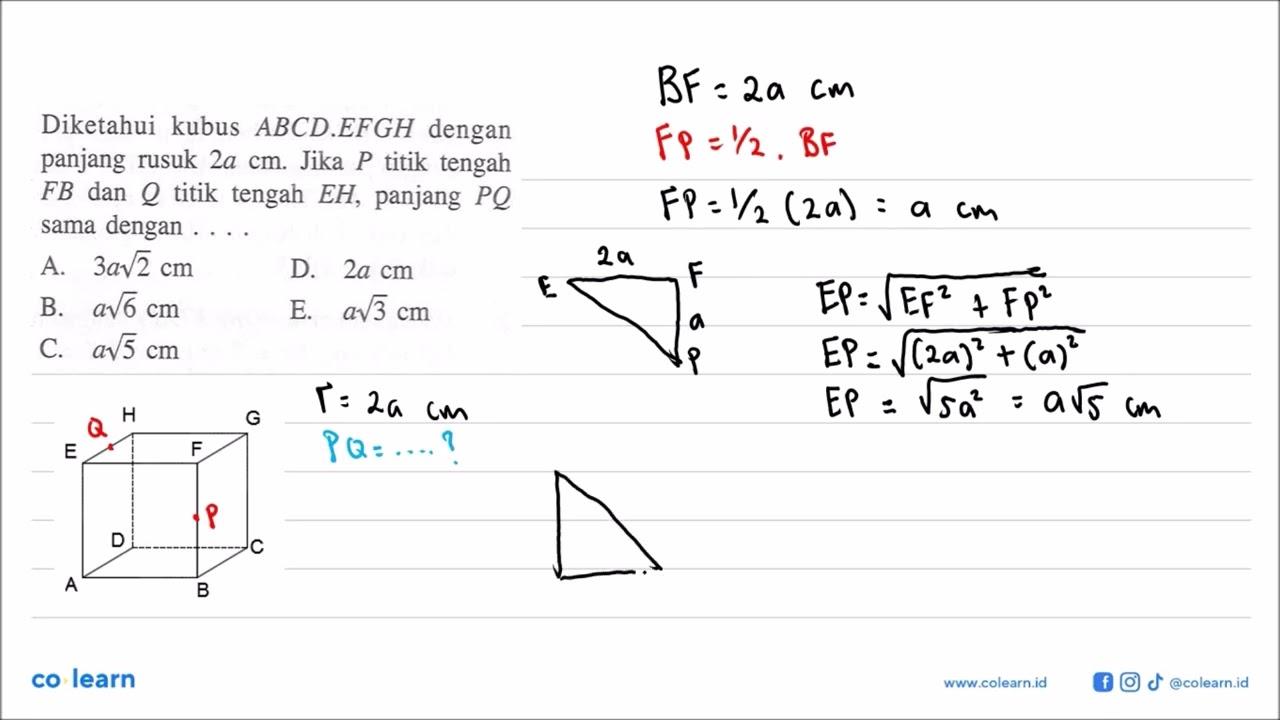 Diketahui kubus ABCD.EFGH dengan
panjang rusuk 2a cm. Jika P titik tengah
FB dan Q titik tengah EH, panjang PQ
sama dengan . . . .
A. 3a√2 cm
B. a√6 cm
C. a√5 cm
D. 2a cm
E. a√3 cm
H
G
Q
E
F
P
D
C
A
B
r = 2a cm
PQ = .... ?
BF = 2a cm
FP = 1/2 . BF
FP = 1/2 (2a) = a cm
2a
E
F
a
P
EP = √EF² + FP²
EP = √(2a)² + (a)²
EP = √5a² = a√5 cm
co learn
www.colearn.id
@colearn.id